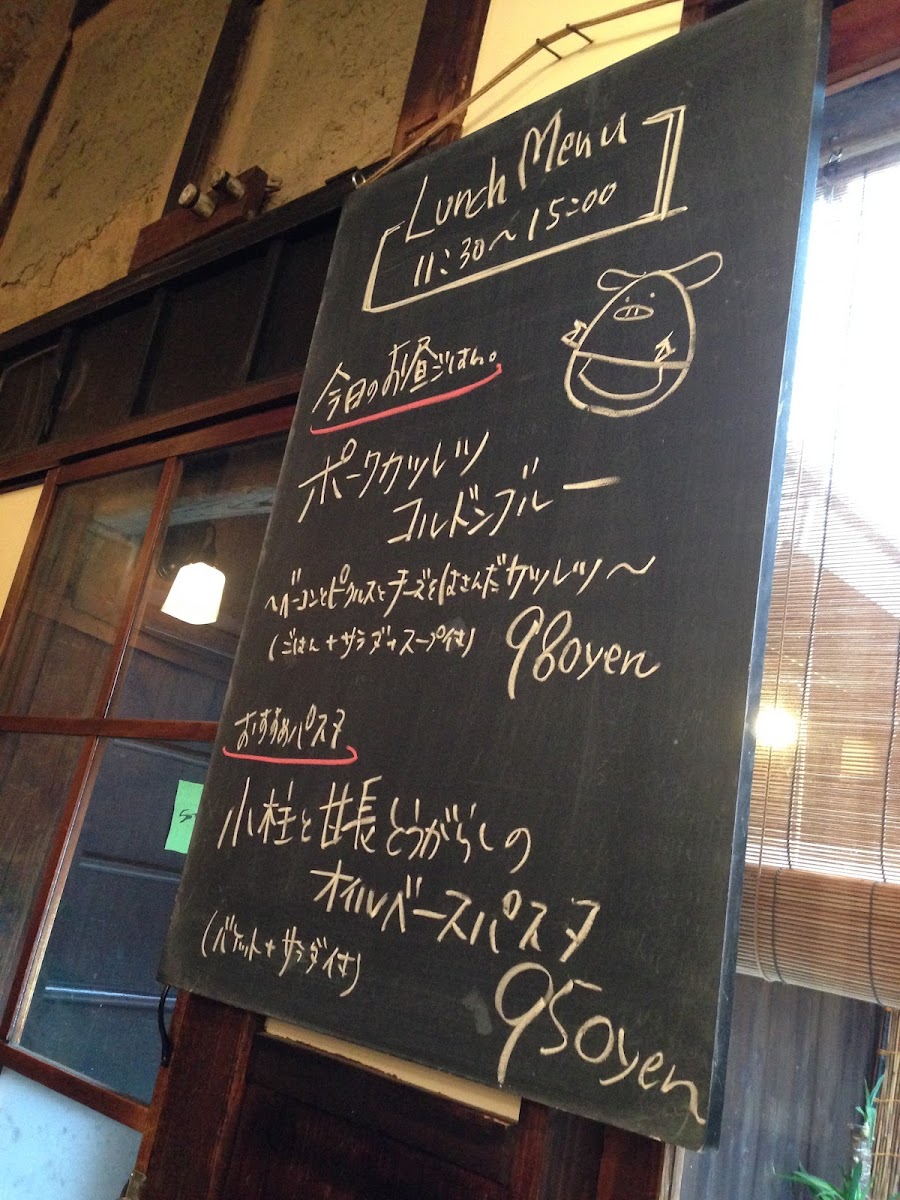 Lunch Menu
11:30～15:00
今日のお昼ごはん。
ポークカツレツ
コルドンブルー
～ベーコンとピクルスとチーズをはさんだカツレツ～
(ごはん+サラダ+スープ付)
980yen
おすすめパスタ
小柱と甘長とうがらしの
オイルベースパスタ
(バケット+サラダ付)
950yen